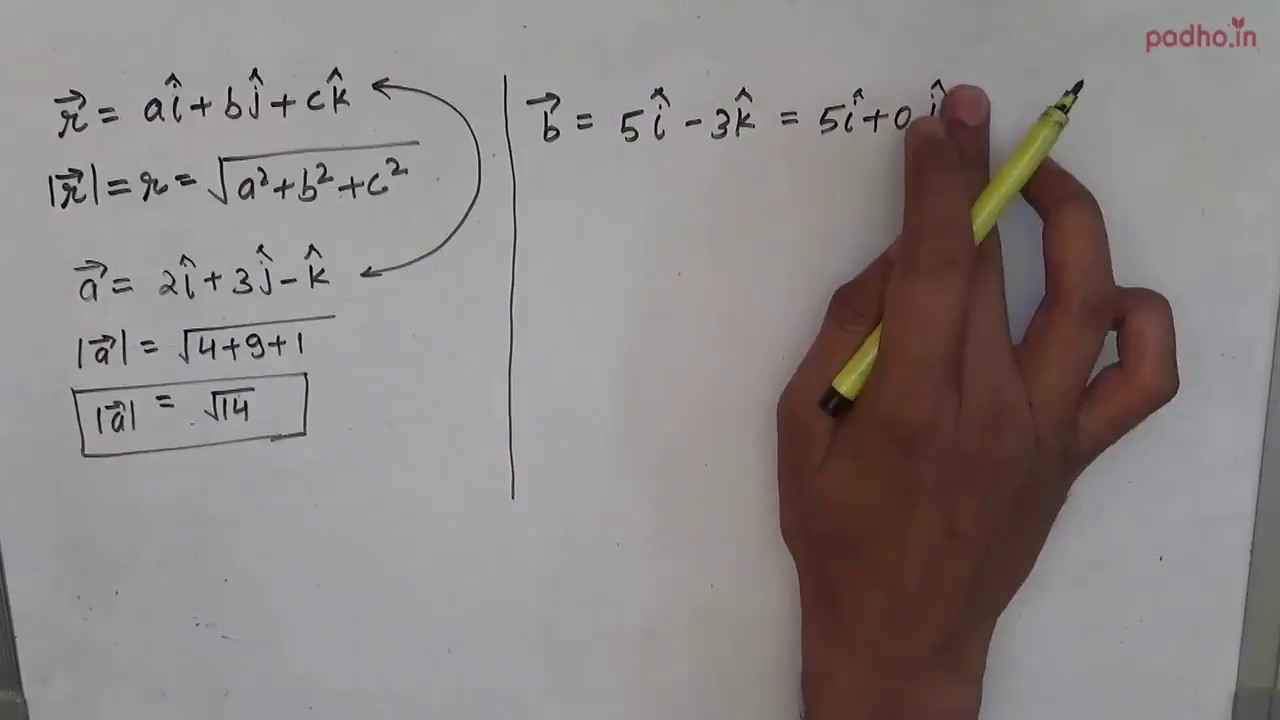 padho.in
r⃗ = aî + bĵ + ck̂
|r⃗| = r = √(a² + b² + c²)
a⃗ = 2î + 3ĵ - k̂
|a⃗| = √(4+9+1)
|a⃗| = √14
b⃗ = 5î - 3k̂ = 5î + 0ĵ